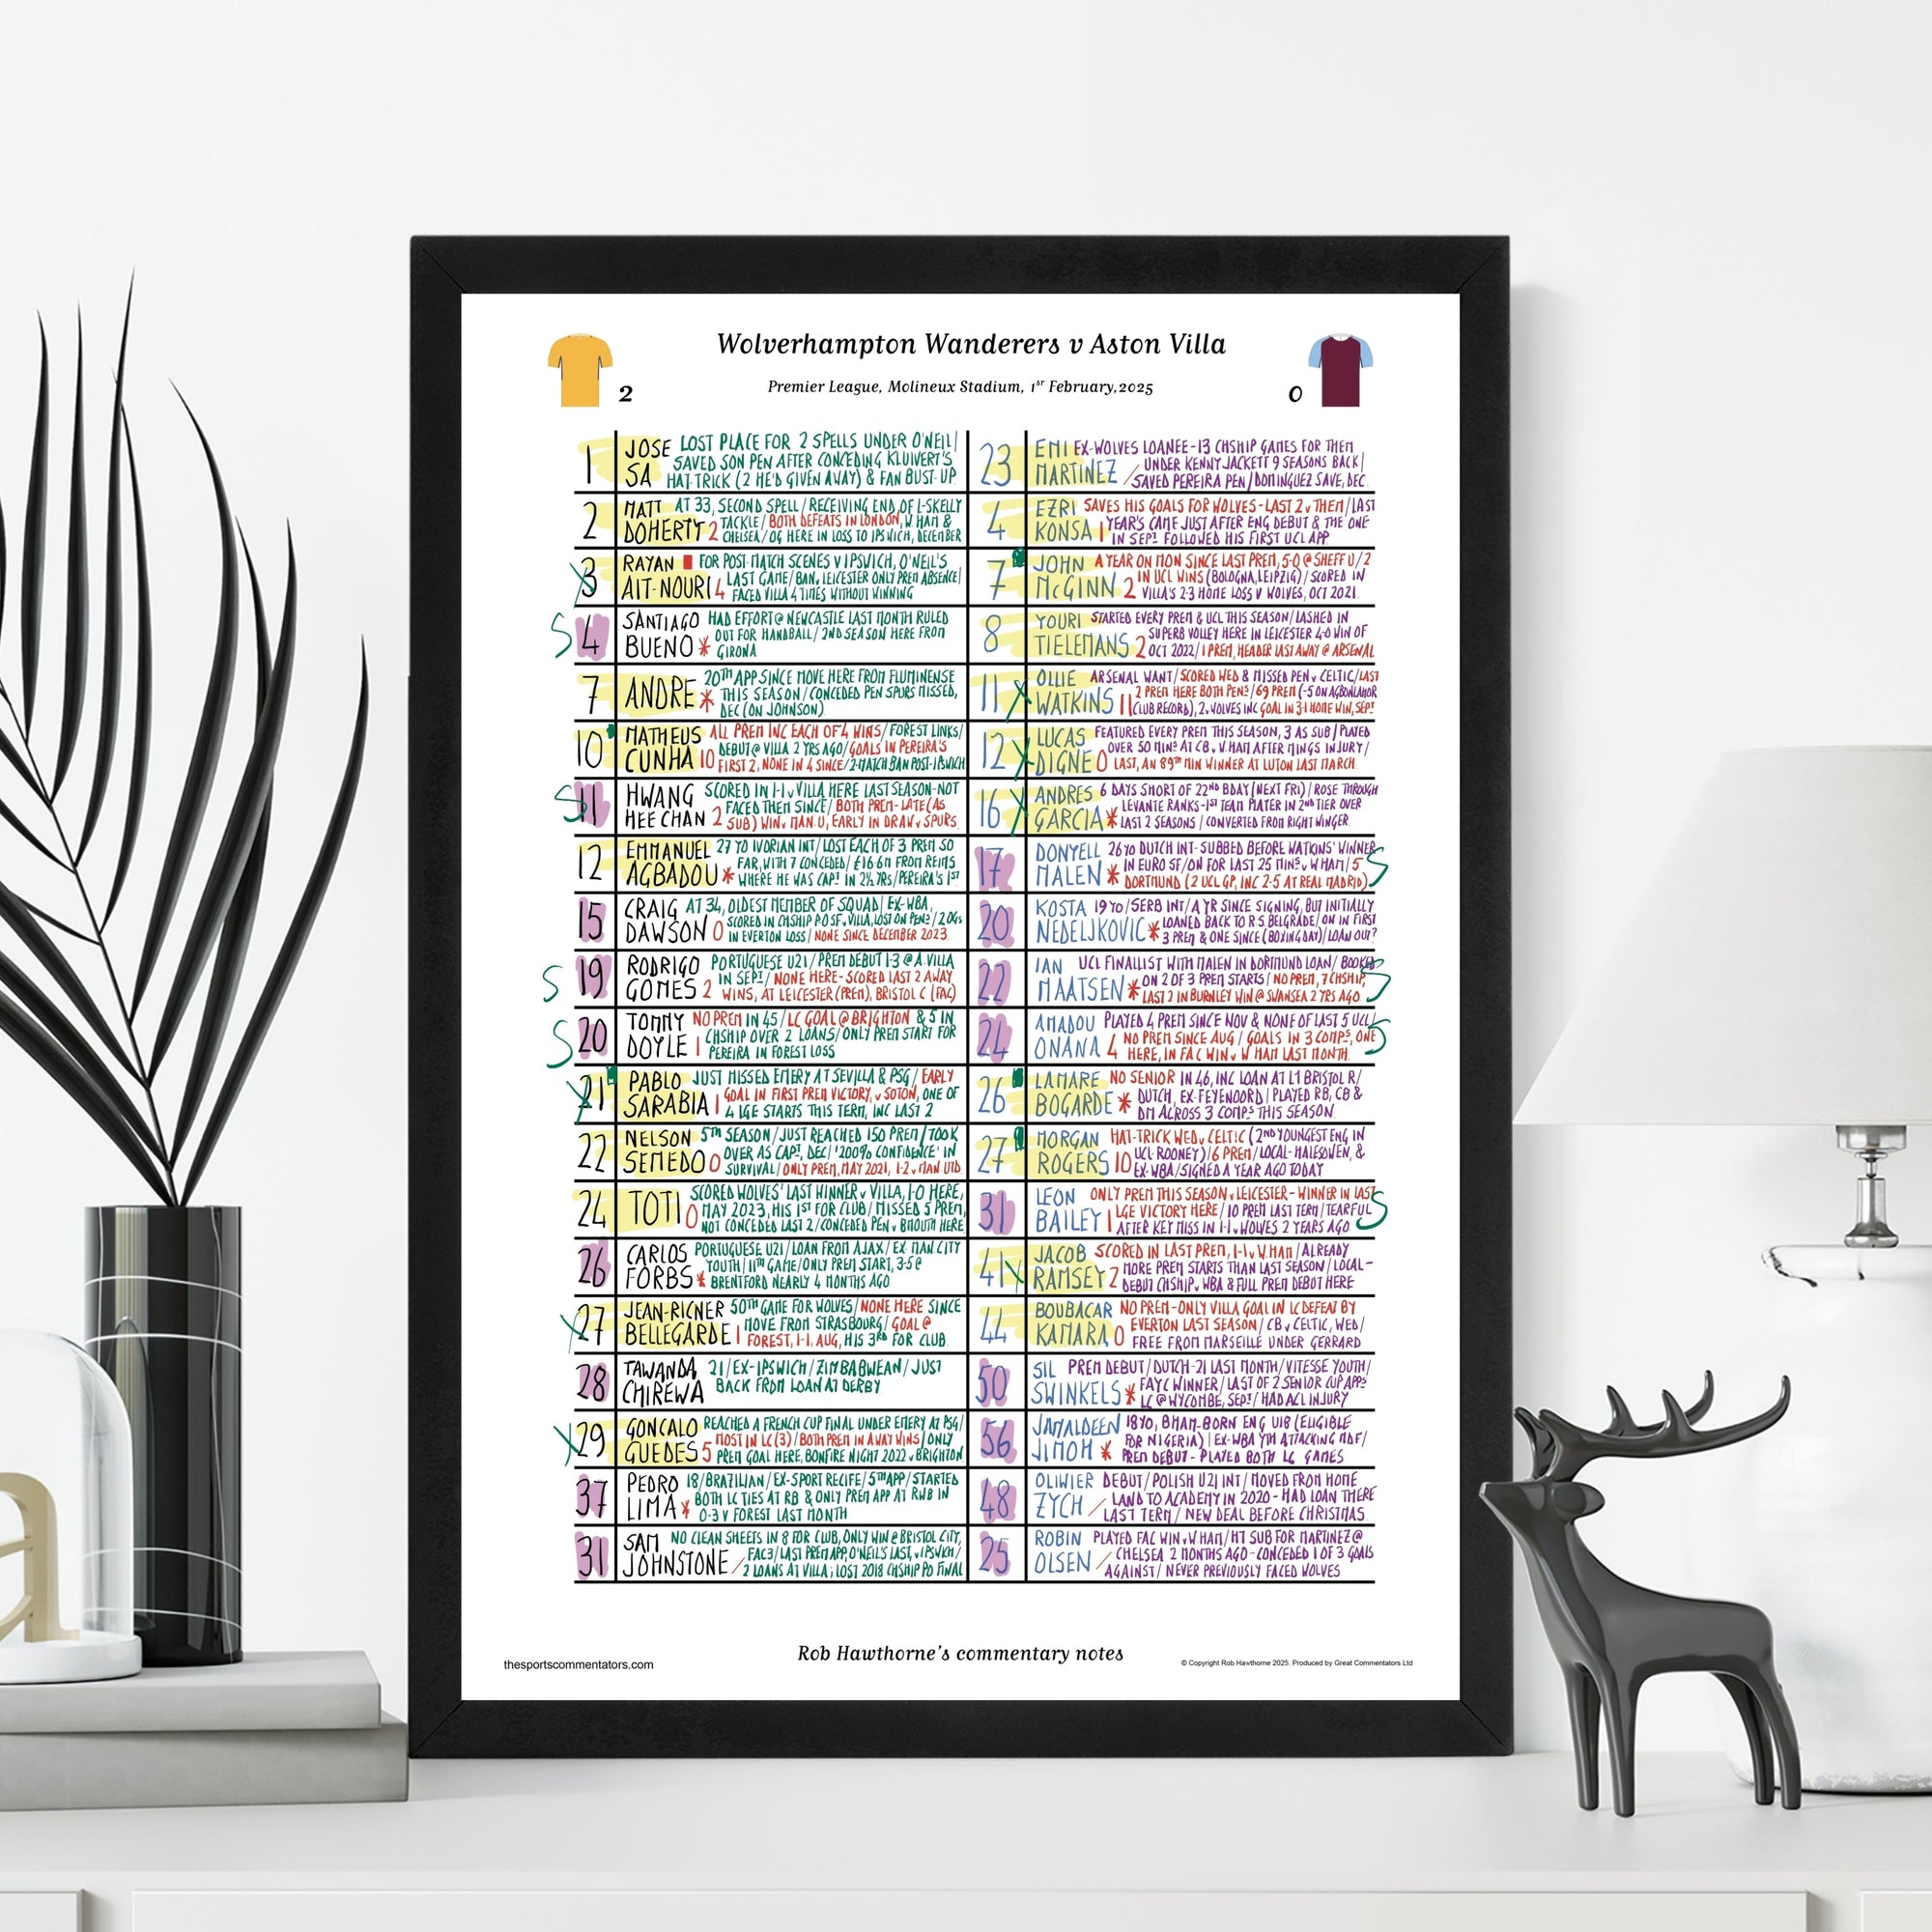 Wolverhampton Wanderers v Aston Villa
Premier League, Molineux Stadium, 1st February, 2025
2
0
1 JOSE SA LOST PLACE FOR 2 SPELLS UNDER O'NEIL/
SAVED SON PEN AFTER CONCEDING KLUIVERT'S
HAT-TRICK (2 HE'D GIVEN AWAY) & FAN BUST-UP
2 MATT DOHERTY 2 AT 33, SECOND SPELL/RECEIVING END OF L-SKELLY
TACKLE/BOTH DEFEATS IN LONDON, W HAM &
CHELSEA/OG HERE IN LOSS TO IPSWICH, DECEMBER
X 3 RAYAN AIT-NOURI 4 FOR POST-MATCH SCENES V IPSWICH, O'NEIL'S
LAST GAME/BAN, LEICESTER ONLY PREM ABSENCE/
FACED VILLA 4 TIMES WITHOUT WINNING
S 4 SANTIAGO BUENO * HAD EFFORT @ NEWCASTLE LAST MONTH RULED
OUT FOR HANDBALL/2ND SEASON HERE FROM
GIRONA
7 ANDRE * 20TH APP SINCE MOVE HERE FROM FLUMINENSE
THIS SEASON/CONCEDED PEN SPURS MISSED,
DEC (ON JOHNSON)
10 MATHEUS CUNHA 10 ALL PREM INC EACH OF 4 WINS/FOREST LINKS/
DEBUT @ VILLA 2 YRS AGO/GOALS IN PEREIRA'S
FIRST 2, NONE IN 4 SINCE/2-MATCH BAN POST-IPSWICH
S 11 HWANG HEE CHAN 2 SCORED IN 1-1 v VILLA HERE LAST SEASON-NOT
FACED THEM SINCE/BOTH PREM-LATE (AS
SUB) WIN v MAN U, EARLY IN DRAW v SPURS
12 EMMANUEL AGBADOU * 27 YO IVORIAN INT/LOST EACH OF 3 PREM SO
FAR, WITH 7 CONCEDED/£16.6M FROM REIMS
WHERE HE WAS CAPT IN 2½ YRS/PEREIRA'S 1ST
15 CRAIG DAWSON 0 AT 34, OLDEST MEMBER OF SQUAD/EX-WBA,
SCORED IN CHSHIP PO SF v VILLA, LOST ON PENS/2 OGs
IN EVERTON LOSS/NONE SINCE DECEMBER 2023
S 19 RODRIGO GOMES 2 PORTUGUESE U21/PREM DEBUT 1-3 @ A.VILLA
IN SEPT/NONE HERE-SCORED LAST 2 AWAY
WINS, AT LEICESTER (PREM), BRISTOL C (FAC)
S 20 TOMMY DOYLE 1 NO PREM IN 45/LC GOAL @ BRIGHTON & 5 IN
CHSHIP OVER 2 LOANS/ONLY PREM START FOR
PEREIRA IN FOREST LOSS
X 21 PABLO SARABIA 1 JUST MISSED EMERY AT SEVILLA & PSG/EARLY
GOAL IN FIRST PREM VICTORY, v SOTON, ONE OF
4 LGE STARTS THIS TERM, INC LAST 2
22 NELSON SEMEDO 0 5TH SEASON/JUST REACHED 150 PREM/TOOK
OVER AS CAPT, DEC/'200% CONFIDENCE' IN
SURVIVAL/ONLY PREM, MAY 2021, 1-2 v MAN UTD
24 TOTI 0 SCORED WOLVES' LAST WINNER v VILLA, 1-0 HERE,
MAY 2023, HIS 1ST FOR CLUB/MISSED 5 PREM,
NOT CONCEDED LAST 2/CONCEDED PEN v BMOUTH HERE
26 CARLOS FORBS * PORTUGUESE U21/LOAN FROM AJAX/EX MAN CITY
YOUTH/11TH GAME/ONLY PREM START, 3-5 @
BRENTFORD NEARLY 4 MONTHS AGO
X 27 JEAN-RICNER BELLEGARDE 1 50TH GAME FOR WOLVES/NONE HERE SINCE
MOVE FROM STRASBOURG/GOAL @
FOREST, 1-1, AUG, HIS 3RD FOR CLUB
28 TAWANDA CHIREWA 21/EX-IPSWICH/ZIMBABWEAN/JUST
BACK FROM LOAN AT DERBY
X 29 GONCALO GUEDES 5 REACHED A FRENCH CUP FINAL UNDER EMERY AT PSG/
MOST IN LC (3)/BOTH PREM IN AWAY WINS/ONLY
PREM GOAL HERE, BONFIRE NIGHT 2022 v BRIGHTON
37 PEDRO LIMA * 18/BRAZILIAN/EX-SPORT RECIFE/5TH APP/STARTED
BOTH LC TIES AT RB & ONLY PREM APP AT RWB IN
0-3 V FOREST LAST MONTH
31 SAM JOHNSTONE / NO CLEAN SHEETS IN 8 FOR CLUB, ONLY WIN @ BRISTOL CITY,
FAC3/LAST PREM APP, O'NEIL'S LAST, v IPSWICH/
2 LOANS AT VILLA; LOST 2018 CHSHIP PO FINAL
23 EMI MARTINEZ / EX-WOLVES LOANEE-13 CHSHIP GAMES FOR THEM
UNDER KENNY JACKETT 9 SEASONS BACK/
SAVED PEREIRA PEN/DOMINGUEZ SAVE, DEC
4 EZRI KONSA 1 SAVES HIS GOALS FOR WOLVES-LAST 2 v THEM/LAST
YEAR'S CAME JUST AFTER ENG DEBUT & THE ONE
IN SEPT FOLLOWED HIS FIRST UCL APP
7 JOHN McGINN 2 A YEAR ON MON SINCE LAST PREM, 5-0 @ SHEFF U/2
IN UCL WINS (BOLOGNA, LEIPZIG)/SCORED IN
VILLA'S 2-3 HOME LOSS V WOLVES, OCT 2021
8 YOURI TIELEMANS 2 STARTED EVERY PREM & UCL THIS SEASON/LASHED IN
SUPERB VOLLEY HERE IN LEICESTER 4-0 WIN OF
OCT 2022/1 PREM, HEADER LAST AWAY @ ARSENAL
11 X OLLIE WATKINS 11 ARSENAL WANT/SCORED WED & MISSED PEN v CELTIC/LAST
2 PREM HERE BOTH PENS/69 PREM (-5 ON AGBONLAHOR
CLUB RECORD), 2 v WOLVES INC GOAL IN 3-1 HOME WIN, SEPT
12 X LUCAS DIGNE 0 FEATURED EVERY PREM THIS SEASON, 3 AS SUB/PLAYED
OVER 50 MINS AT CB v W.HAM AFTER MINGS INJURY/
LAST, AN 89TH MIN WINNER AT LUTON LAST MARCH
16 X ANDRES GARCIA * 6 DAYS SHORT OF 22ND BDAY (NEXT FRI)/ROSE THROUGH
LEVANTE RANKS-1ST TEAM PLAYER IN 2ND TIER OVER
LAST 2 SEASONS/CONVERTED FROM RIGHT WINGER
17 DONYELL MALEN * 26YO DUTCH INT-SUBBED BEFORE WATKINS' WINNER S
IN EURO SF/ON FOR LAST 25 MINS v W HAM/5
DORTMUND (2 UCL GP, INC 2-5 AT REAL MADRID)
20 KOSTA NEDELJKOVIC * 19 YO/SERB INT/A YR SINCE SIGNING, BUT INITIALLY
LOANED BACK TO R S BELGRADE/ON IN FIRST
3 PREM & ONE SINCE (BOXING DAY)/LOAN OUT?
22 IAN MAATSEN * UCL FINALLIST WITH MALEN IN DORTMUND LOAN/BOOKED S
ON 2 OF 3 PREM STARTS/NO PREM, 7 CHSHIP,
LAST 2 IN BURNLEY WIN @ SWANSEA 2 YRS AGO
24 AMADOU ONANA 4 PLAYED 4 PREM SINCE NOV & NONE OF LAST 5 UCL/ S
NO PREM SINCE AUG/GOALS IN 3 COMPS, ONE
HERE, IN FAC WIN v W HAM LAST MONTH
26 LAMARE BOGARDE * NO SENIOR IN 46, INC LOAN AT L1 BRISTOL R/
DUTCH, EX-FEYENOORD/PLAYED RB, CB &
DM ACROSS 3 COMPS THIS SEASON
27 MORGAN ROGERS 10 HAT-TRICK WED v CELTIC (2ND YOUNGEST ENG IN
UCL-ROONEY)/6 PREM/LOCAL-HALESOWEN, &
EX-WBA/SIGNED A YEAR AGO TODAY
31 LEON BAILEY 1 ONLY PREM THIS SEASON v LEICESTER-WINNER IN LAST S
LGE VICTORY HERE/10 PREM LAST TERM/TEARFUL
AFTER KEY MISS IN 1-1 v WOLVES 2 YEARS AGO
41 X JACOB RAMSEY 2 SCORED IN LAST PREM, 1-1 v W.HAM/ALREADY
MORE PREM STARTS THAN LAST SEASON/LOCAL-
DEBUT CHSHIP v WBA & FULL PREM DEBUT HERE
44 BOUBACAR KAMARA 0 NO PREM-ONLY VILLA GOAL IN LC DEFEAT BY
EVERTON LAST SEASON/CB v CELTIC, WED/
FREE FROM MARSEILLE UNDER GERRARD
50 SIL SWINKELS * PREM DEBUT/DUTCH-21 LAST MONTH/VITESSE YOUTH/
FAYC WINNER/LAST OF 2 SENIOR CUP APPS
LC @ WYCOMBE, SEPT/HAD ACL INJURY
56 JAMALDEEN JIMOH * 18YO, BHAM-BORN ENG U18 (ELIGIBLE
FOR NIGERIA)/EX-WBA YTH ATTACKING MDF/
PREM DEBUT-PLAYED BOTH LC GAMES
48 OLIWIER ZYCH / DEBUT/POLISH U21 INT/MOVED FROM HOME
LAND TO ACADEMY IN 2020-HAD LOAN THERE
LAST TERM/NEW DEAL BEFORE CHRISTMAS
25 ROBIN OLSEN / PLAYED FAC WIN v W HAM/HT SUB FOR MARTINEZ @
CHELSEA 2 MONTHS AGO-CONCEDED 1 OF 3 GOALS
AGAINST/NEVER PREVIOUSLY FACED WOLVES
Rob Hawthorne's commentary notes
thesportscommentators.com
© Copyright Rob Hawthorne 2025. Produced by Great Commentators Ltd